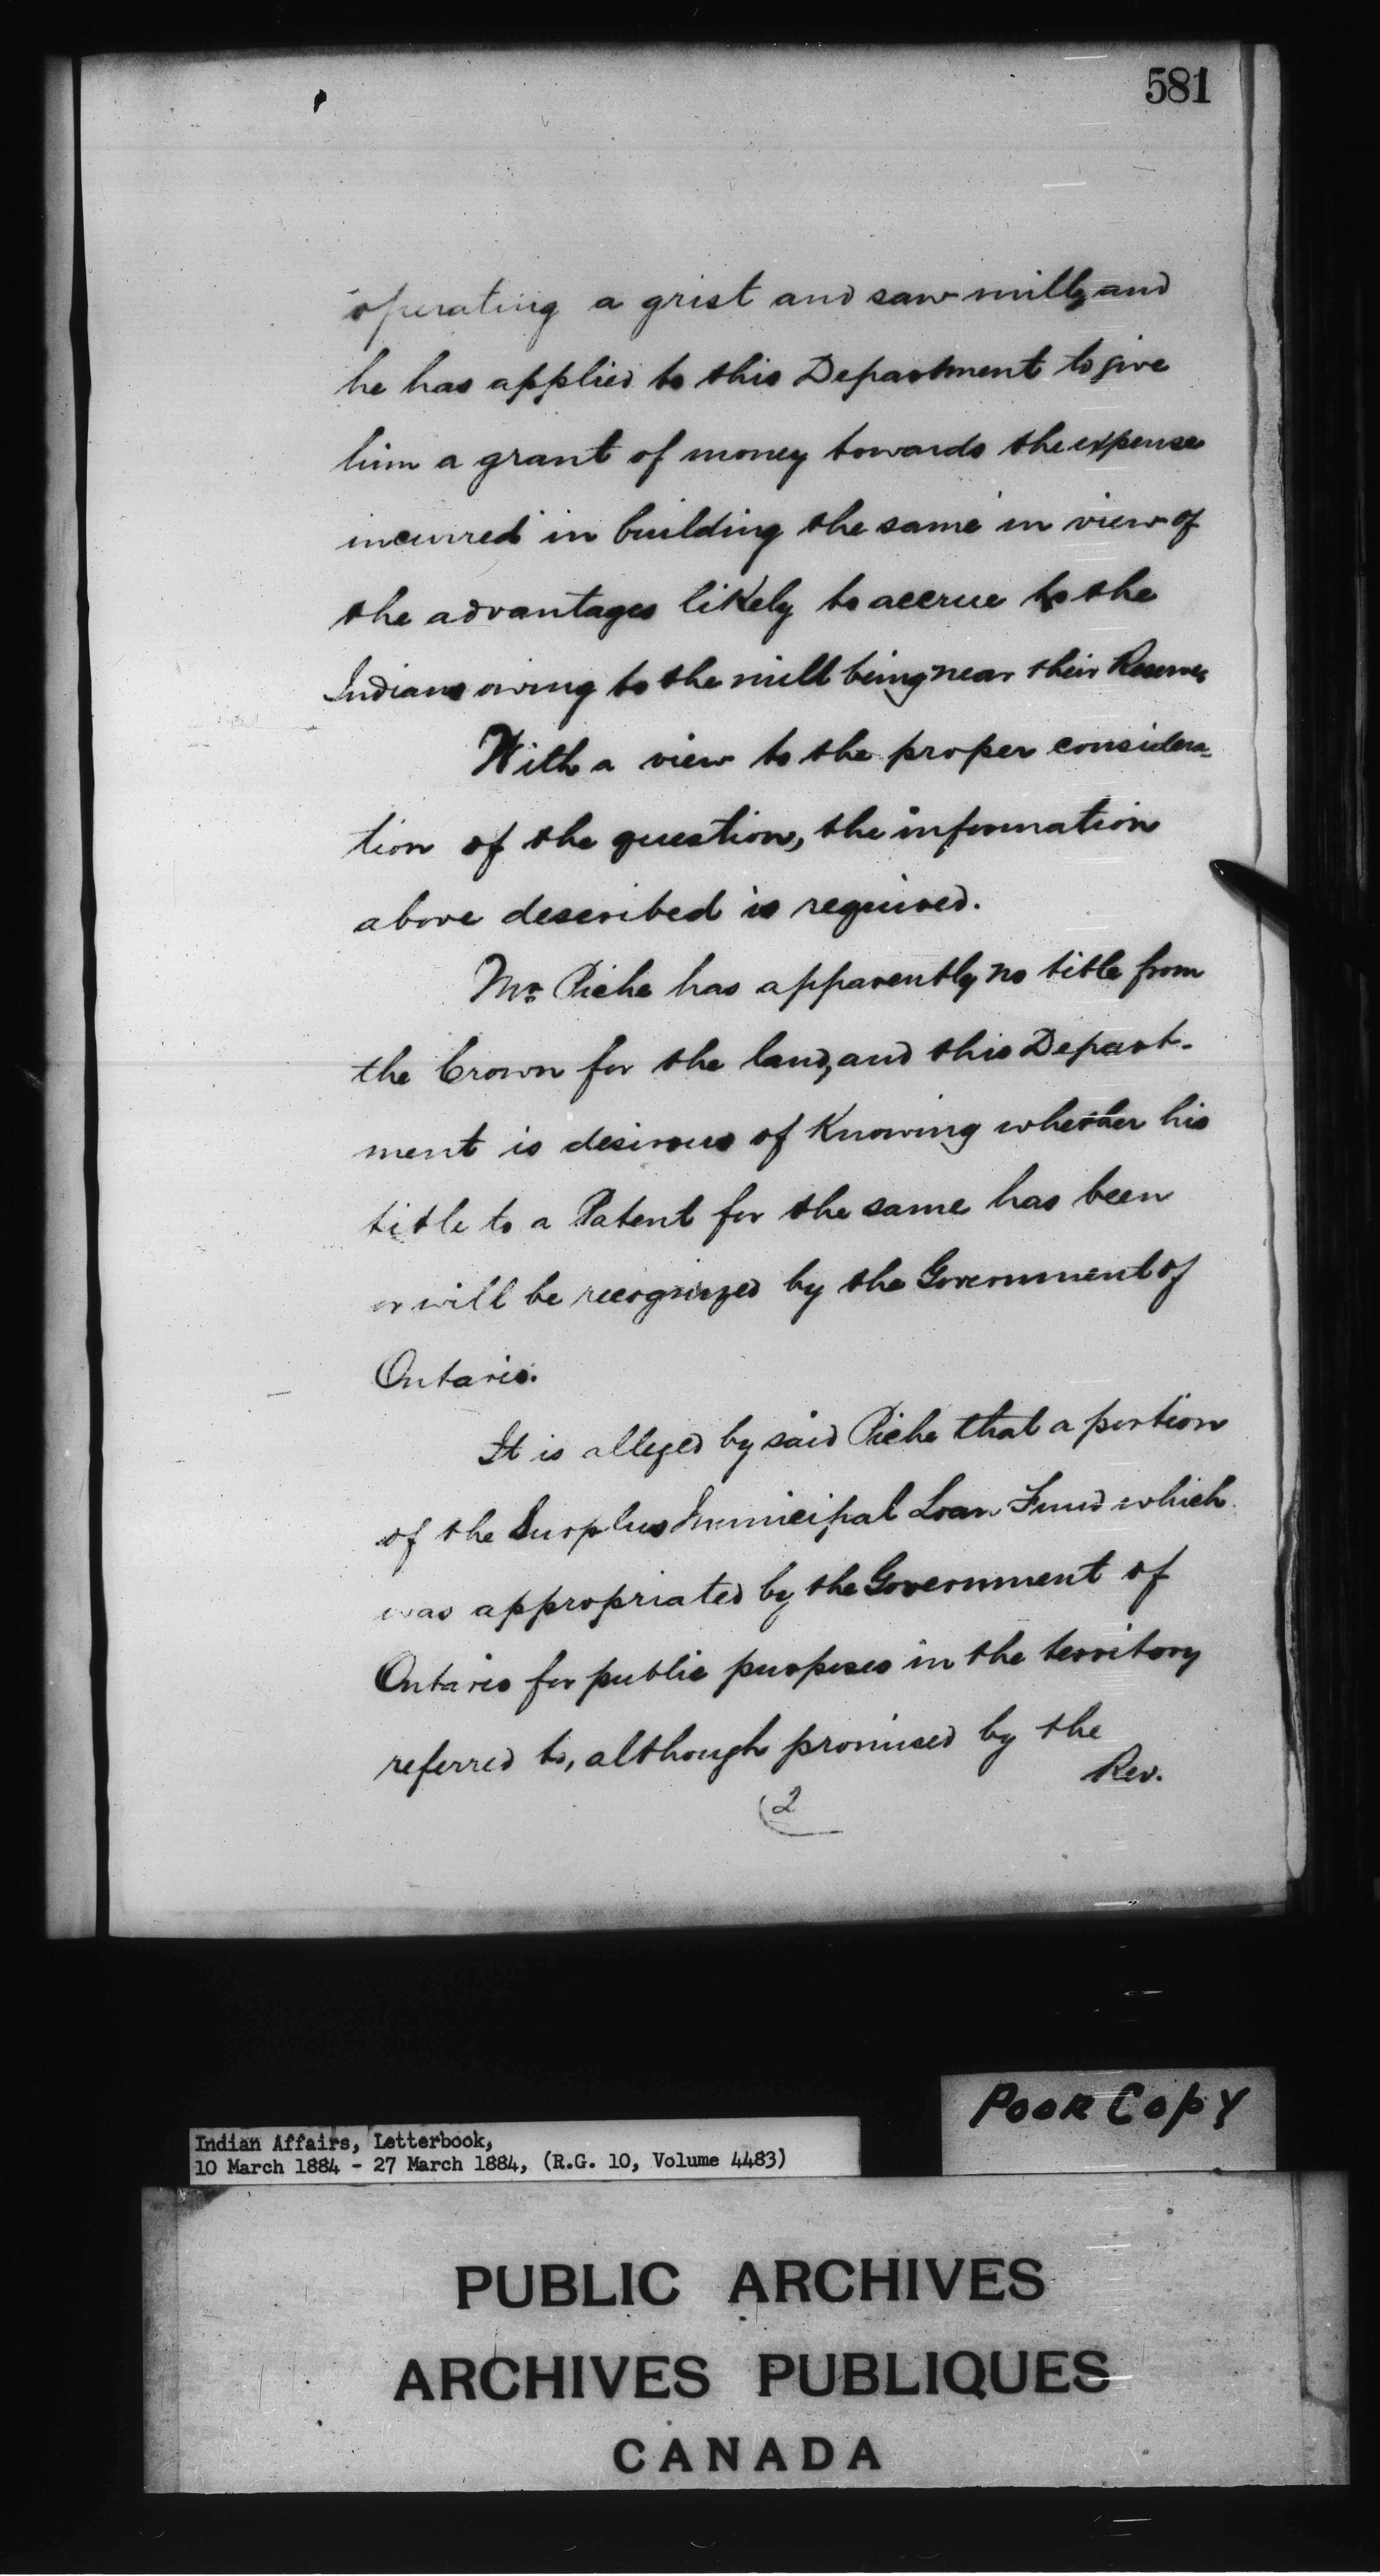 581
operating a grist and saw mill, and
he has applied to this Department to give
him a grant of money towards the expense
incurred in building the same in view of
the advantages likely to accrue to the
Indians owing to the mill being near their Reserve,
With a view to the proper considera-
tion of the question, the information
above described is required.
Mr. Piche has apparently no title from
the Crown for the land, and this Depart-
ment is desirous of Knowing whether his
title to a Patent for the same has been
or will be recognized by the Government of
Ontario.
It is alleged by said Piche that a portion
of the Surplus Municipal Loan Fund which
was appropriated by the Government of
Ontario for public purposes in the territory
referred to, although promised by the
Rev.
2
Poor Copy
Indian Affairs, Letterbook,
10 March 1884 - 27 March 1884, (R.G. 10, Volume 4483)
PUBLIC ARCHIVES
ARCHIVES PUBLIQUES
CANADA